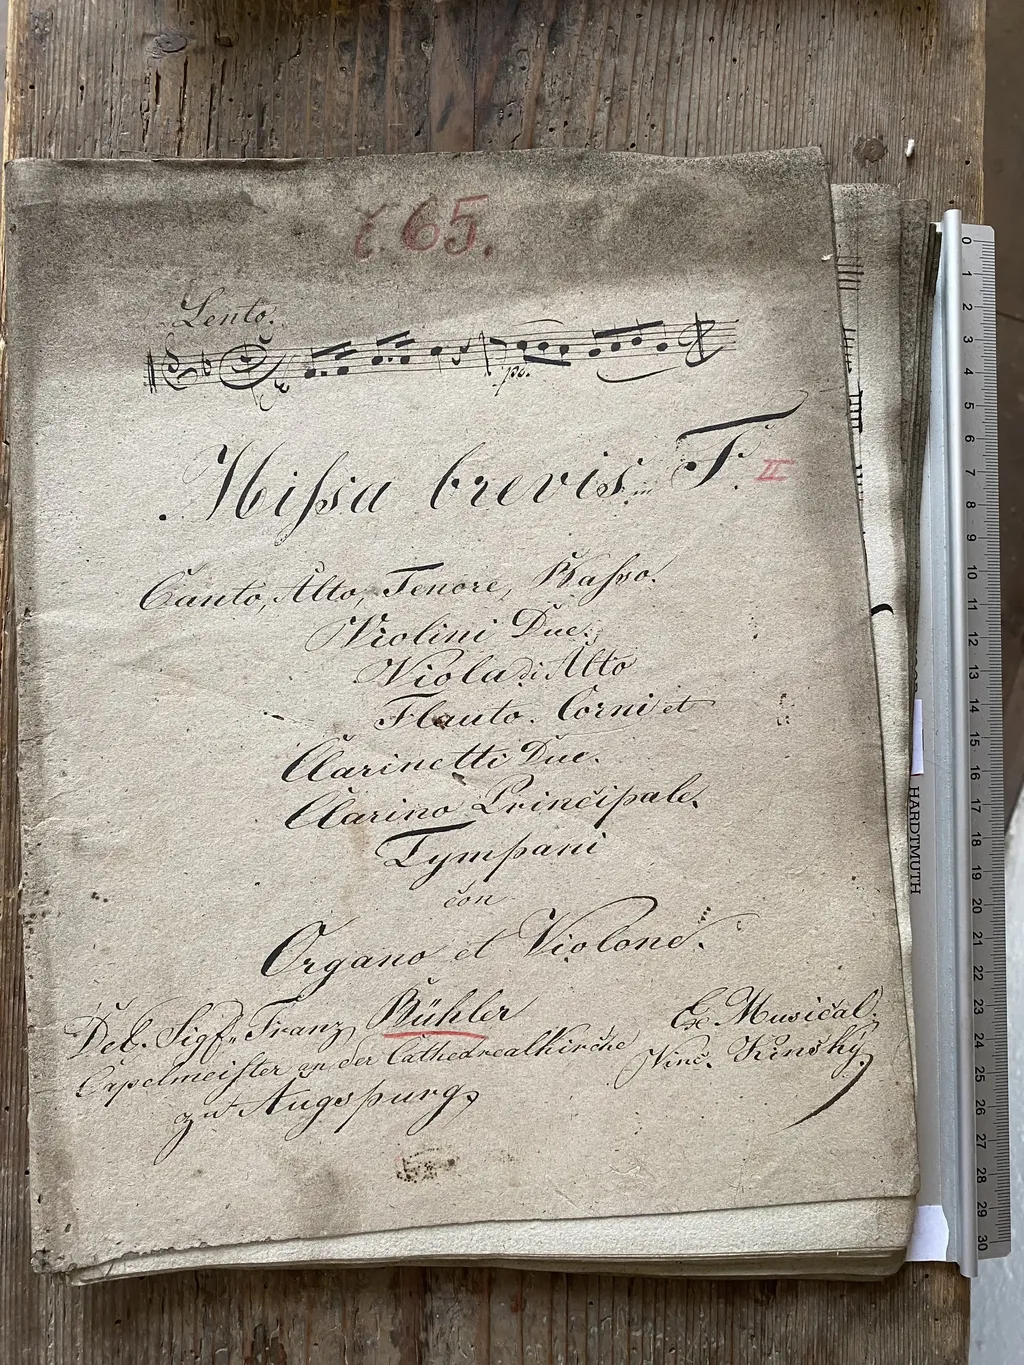 č. 65.
Lento.
po.
Missa brevis in F. II
Canto, Alto, Tenore, Basso.
Violini Due.
Viola di Alto
Flauto. Corni et
Clarinetti Due.
Clarino Principale.
Tympani
con
Organo et Violone.
Del. Sigr. Franz Bühler
Capelmeister an der Cathedrealkirche
zu Augspurg.
Ex. Musical.
Vinc. Kinsky
0 1 2 3 4 5 6 7 8 9 10 11 12 13 14 15 16 17 18 19 20 21 22 23 24 25 26 27 28 29 30
HARDTMUTH